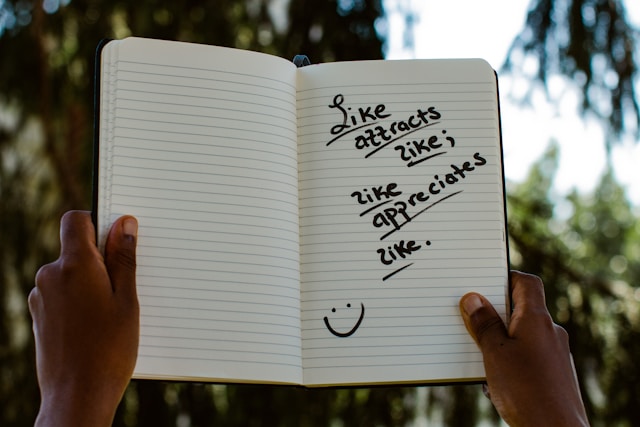 Like
attracts
like;
like
appreciates
like.